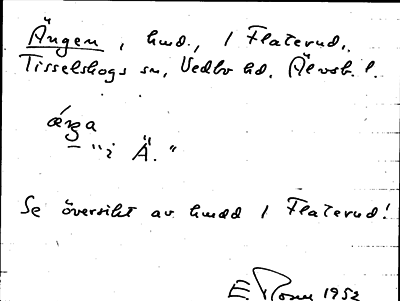 Ängen, hmd., i Flaterud,
Tisselskogs sn, Vedbo hd, Älvsb. l.
ærga
– "i Ä."
Se översikt av hmdd i Flaterud!
E. Rosn 1952